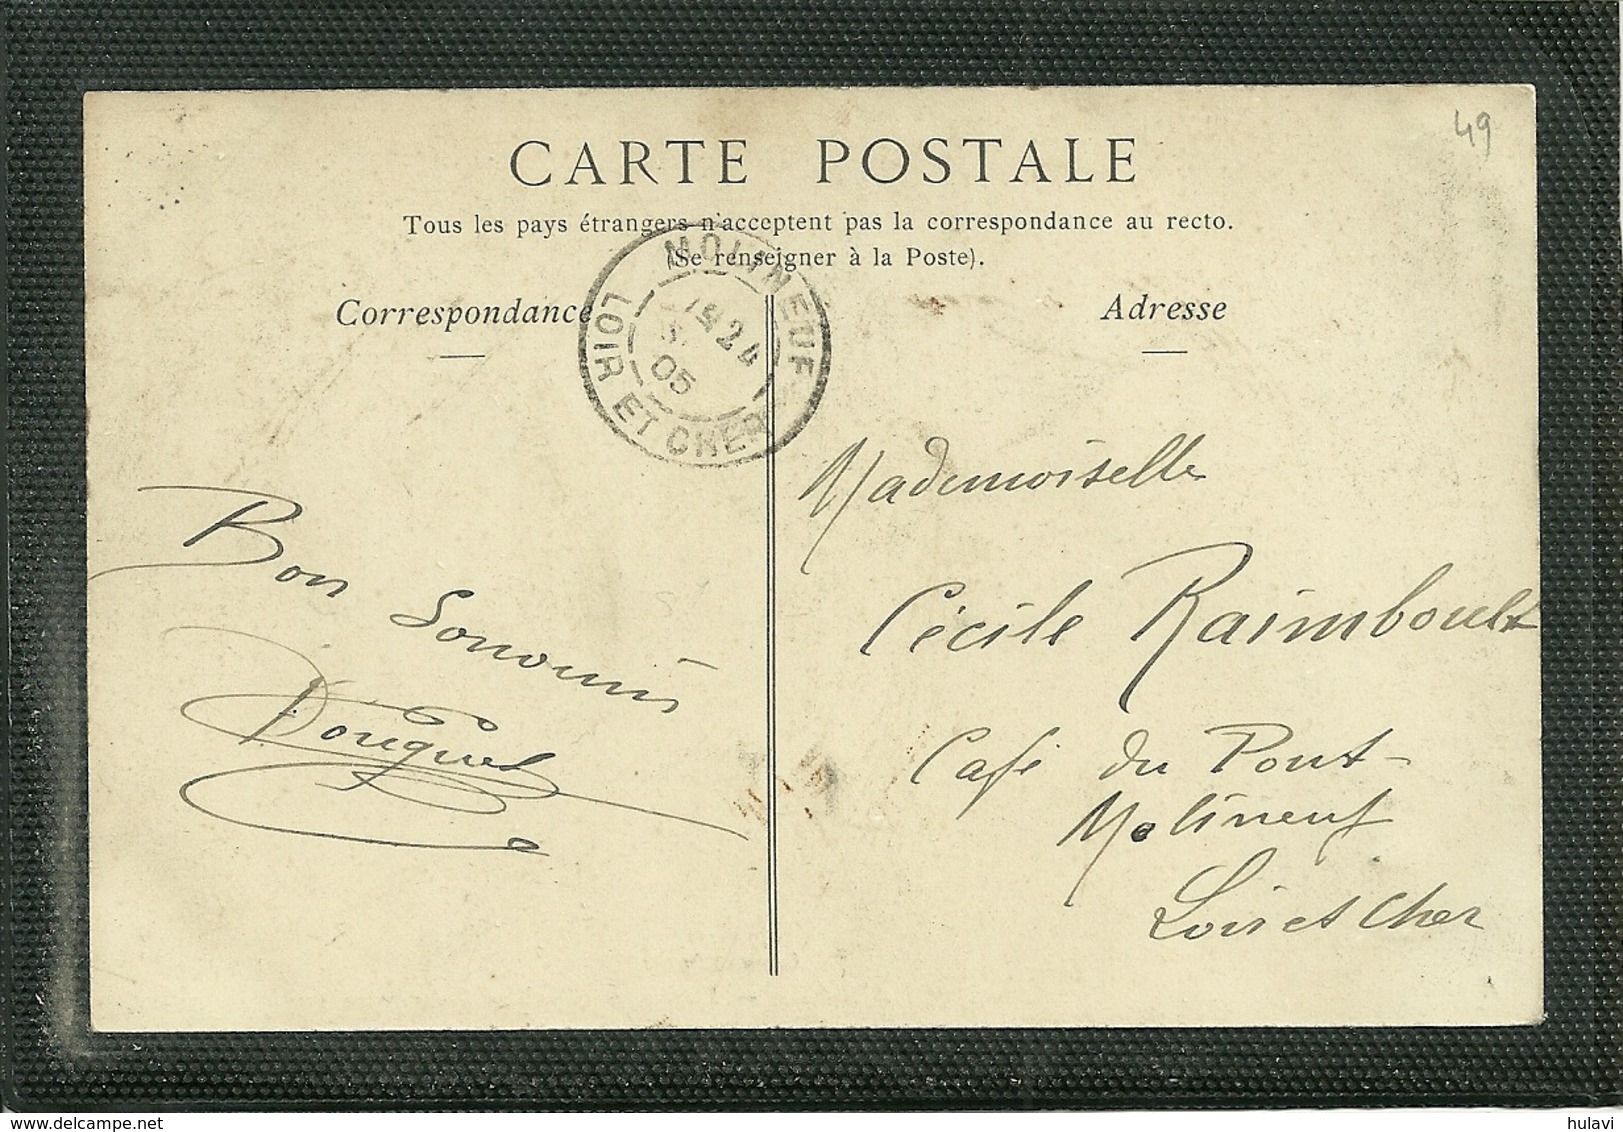 49
CARTE POSTALE
Tous les pays étrangers n'acceptent pas la correspondance au recto.
(Se renseigner à la Poste).
Correspondance
Adresse
MOLINEUF
24
05
LOIR ET CHER
Bon Souvenir
Douguet
Mademoiselle
Cécile Raimboult
Café du Pont
Molineuf
Loir et Cher
hulavi